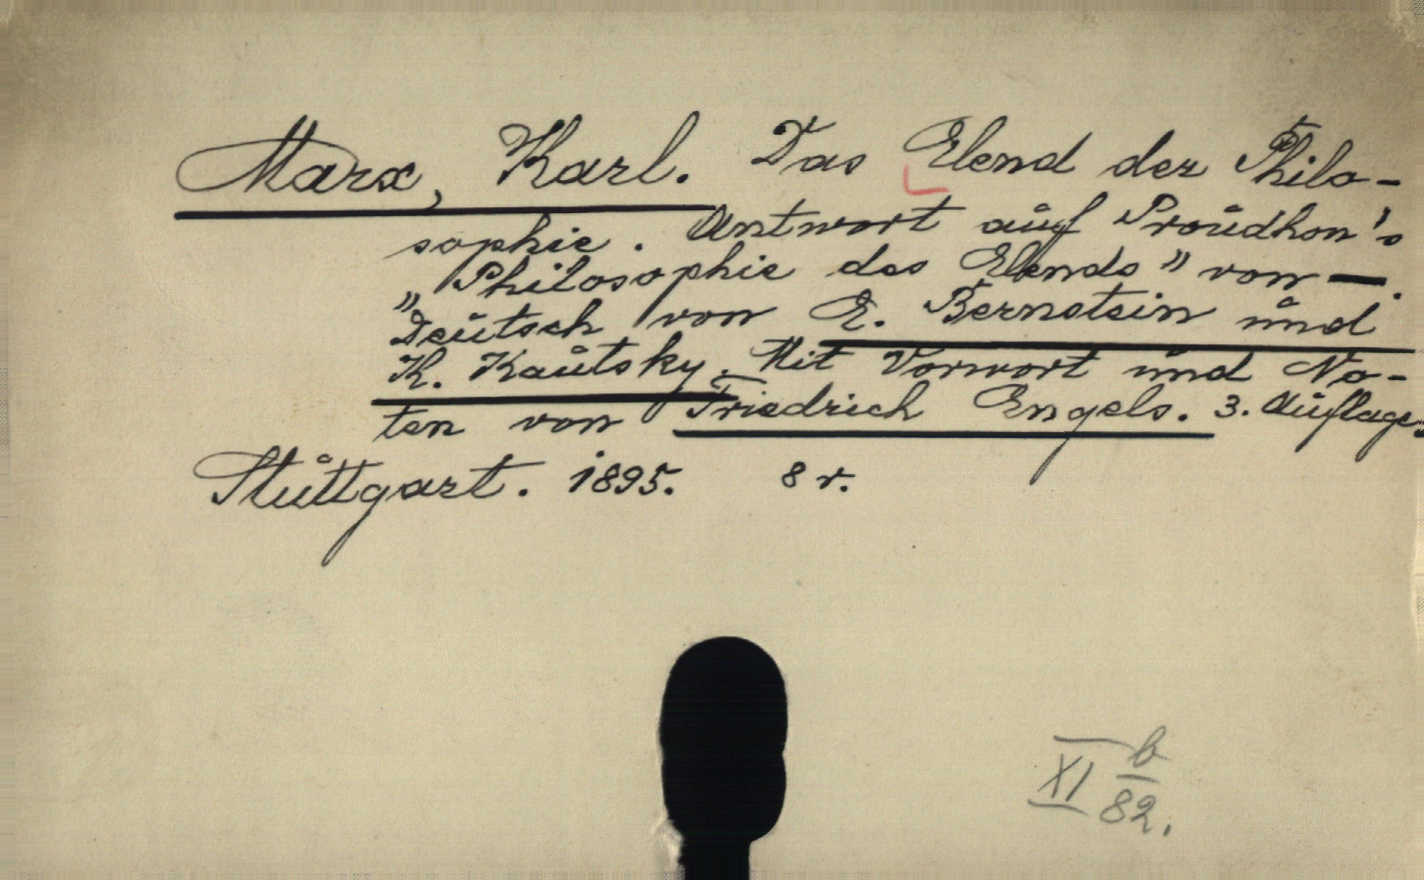 Marx, Karl. Das Elend der Philo-
sophie. Antwort auf Proudhon's
„Philosophie des Elends" von —.
Deutsch von E. Bernstein und
K. Kautsky. Mit Vorwort und No-
ten von Friedrich Engels. 3. Auflage.
Stuttgart. 1895. 8 r.
XI b
82.